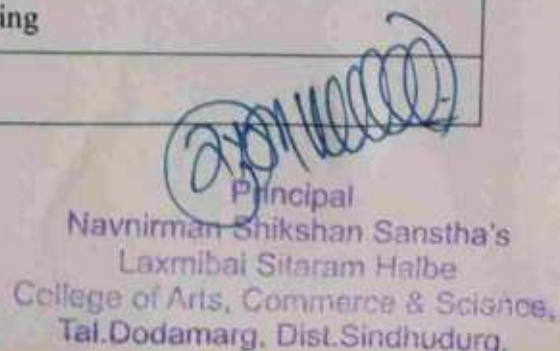 ing
Principal
Navnirman Shikshan Sanstha's
Laxmibai Sitaram Halbe
College of Arts, Commerce & Science,
Tal.Dodamarg, Dist.Sindhudurg.